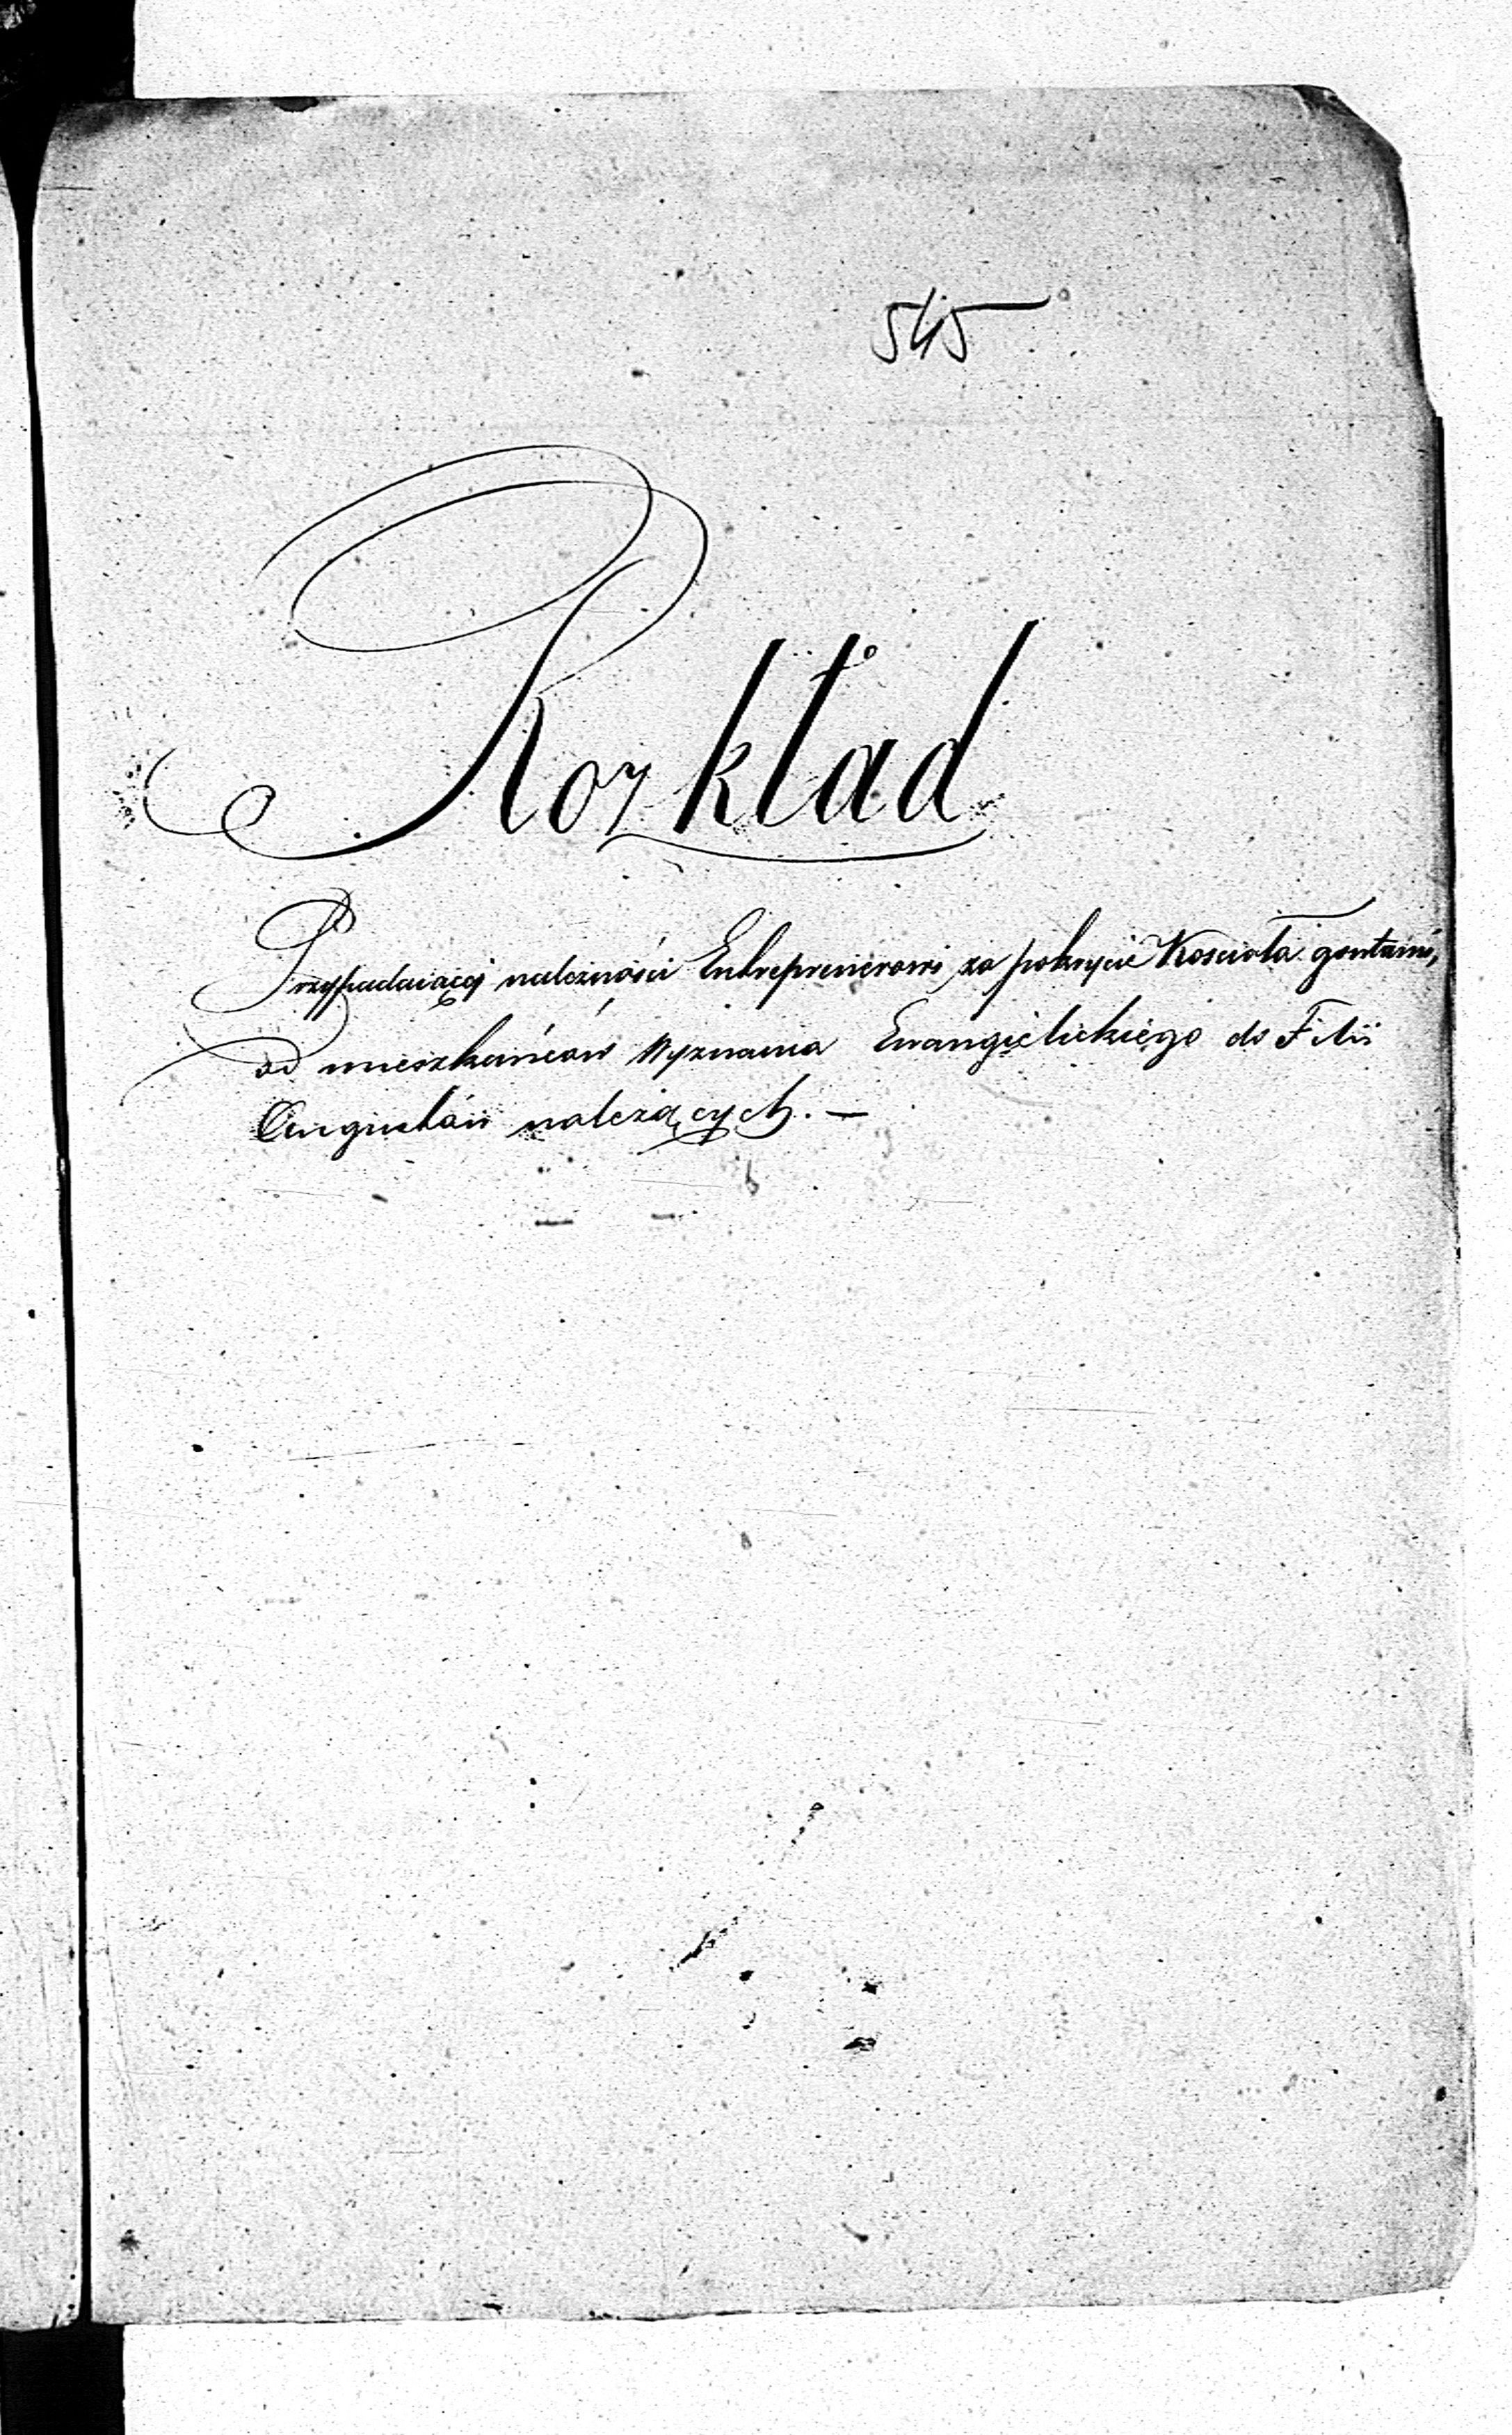 545
Rozkład
Przypadaiącej należności Entreprenerowi za pokrycie Kościoła gontami,
od mieszkańców Wyznania Ewangielickiego do Filii
należących. —